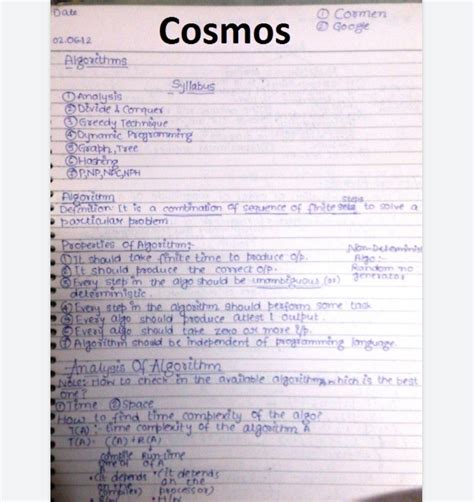 Date
02.06.12
Cosmos
① Cormen
② Google
Algorithms
Syllabus
① Analysis
② Divide & Conquer
③ Greedy Technique
④ Dynamic Programming
⑤ Graph, Tree
⑥ Hashing
⑦ P, NP, NPC, NPH
Algorithm
Definition: It is a combination of sequence of finite steps to solve a
particular problem
Properties Of Algorithm:-
① It should take finite time to produce o/p.
② It should produce the correct o/p.
③ Every step in the algo should be unambiguous (or)
deterministic.
④ Every step in the algorithm should perform some task
⑤ Every algo should produce atlest 1 output.
⑥ Every algo should take zero or more i/p.
⑦ Algorithm should be independent of programming language.
Algo:-
Random no
generator
Analysis Of Algorithm
Note: How to check in the available algorithms which is the best
one?
① Time ② Space
How to find time complexity of the algo?
T(A) :- time complexity of the algorithm A
T(A) : C(A) + R(A)
compile Run-time
time of of A
• (it depends • (it depends
on the on the
compiler) processor)